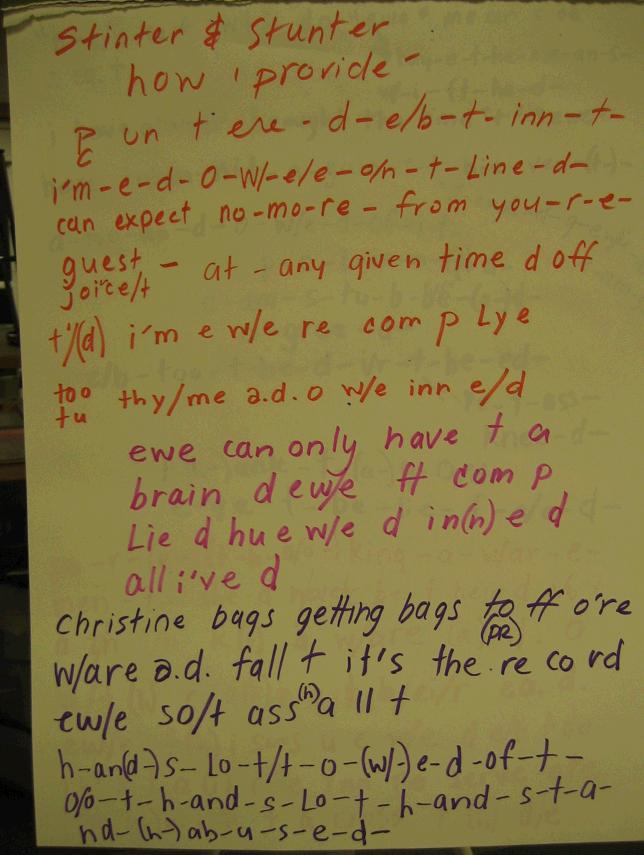 Stinter & Stunter
how i provide -
P un t ere - d - e/b - t - inn - t -
E
i'm - e - d - O - W/- e/e - o/n - t - Line - d -
can expect no - mo - re - from you - r - e -
guest - at - any given time d off
joice/t
t'/(d) i'm e w/e re com p Lye
too thy/me a.d. o w/e inn e/d
tu
ewe can only have t a
brain d ew/e ft com p
Lie d hu e w/e d in(n) e d
all i've d
Christine bags getting bags to ff o're
(PR)
w/are a.d. fall t it's the re co rd
ew/e so/t ass (h) a ll t
h - an(d-) s - Lo - t/t - o - (w/-) e - d - of - t -
o/o - t - h - and - s - Lo - t - h - and - s - t - a -
nd - (h-) ab - u - s - e - d -